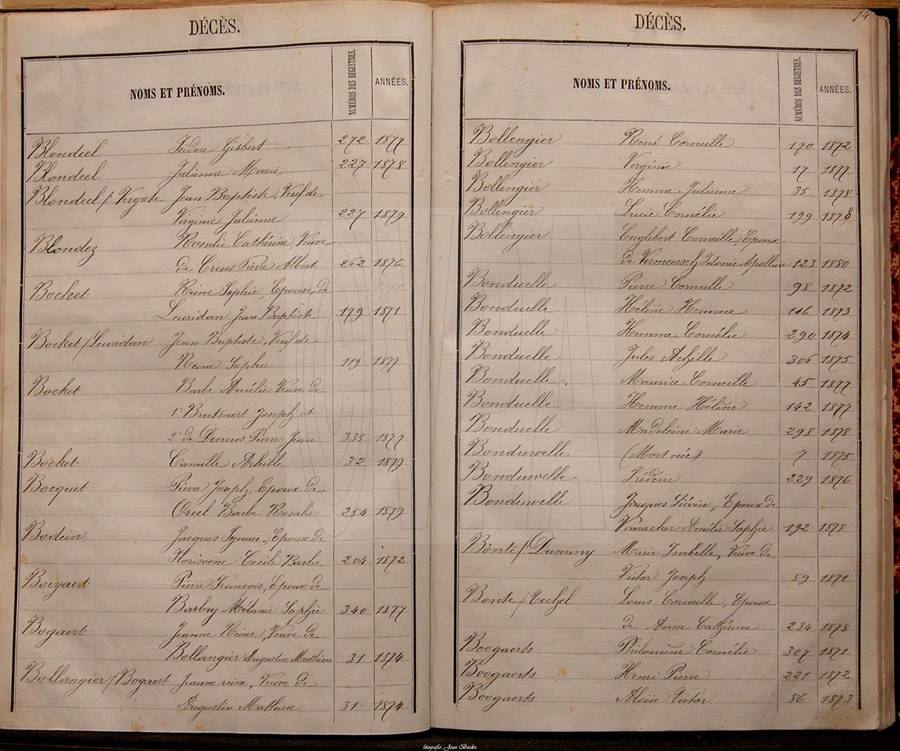 DÉCÈS.
NOMS ET PRÉNOMS. NUMÉROS DES REGISTRES. ANNÉES.
Blondeel Isidore Gisbert 272 1877
Blondeel Julienne Marie 227 1878
Blondeel / Vergote Jean Baptiste, Veuf de
Virginie Julienne 227 1879
Blondez Rosalie Cathérine, Veuve
de Creus Pierre Albert 262 1876
Bocket Reine Sophie, Epouse de
Leuridan Jean Baptiste 179 1871
Bocket / Leuridan Jean Baptiste, Veuf de
Reine Sophie 119 1877
Bocket Barbe Amélie Veuve de
1º Joseph et
2º de Pierre Jean 335 1877
Bocket Camille Achille 32 1879
Bocquet Pierre Joseph, Epoux de
Barbe Rosalie 254 1879
Bodein Jacques Ignace, Epoux de
Cécile Barbe 204 1872
Pierre François, Epoux de
Barbry Mélanie Sophie 340 1877
Bogaert Jeanne Reine, Veuve de
Bollangier Augustin Mathieu 31 1874
Bollangier / Bogaert Jeanne reine, Veuve de
Augustin Mathieu 31 1874
14
DÉCÈS.
NOMS ET PRÉNOMS. NUMÉROS DES REGISTRES. ANNÉES.
Bollengier René Corneille 170 1872
Bollengier Virginie 17 1877
Bollengier Hemma Julienne 35 1878
Bollengier Lucie Cornélie 199 1878
Bollengier Englebert Corneille, Epoux
de Apolline 123 1880
Bonduelle Pierre Corneille 98 1872
Bonduelle Hélène Hemma 146 1873
Bonduelle Hemma Cornélie 290 1874
Bonduelle Jules Achille 306 1875
Bonduelle Maurice Corneille 45 1877
Bonduelle Hemma Hélène 142 1877
Bonduelle Madeleine Marie 298 1878
Bonduwelle (Mort né) 7 1875
Bonduwelle Frédéric 229 1876
Bonduwelle Jacques Liévin, Epoux de
Amélie Sophie 192 1878
Bonte / Dummy Marie Isabelle, Veuve de
Victor Joseph 59 1871
Bonte / Louis Corneille, Epoux
de Anne Cathérine 234 1878
Boogaerts Philomène Cornélie 307 1871
Boogaerts Henri Pierre 221 1872
Boogaerts Aloïse Victor 86 1873
fotografie Jean Boedts